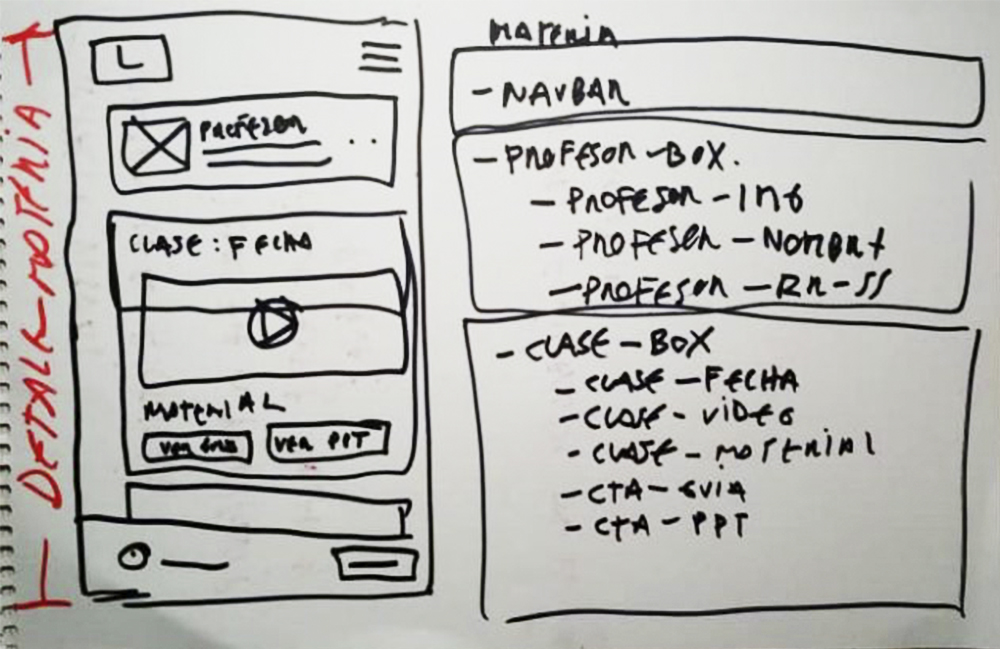 DETALLE-MATERIA
L
PROFESOR
CLASE: FECHA
MATERIAL
VER PPT
MATERIA
- NAVBAR
- PROFESOR-BOX.
- PROFESOR-IMG
- PROFESOR-NOMBRE
- PROFESOR-RR-SS
- CLASE-BOX
- CLASE-FECHA
- CLASE-VIDEO
- CLASE-MATERIAL
- CTA-GUIA
- CTA-PPT